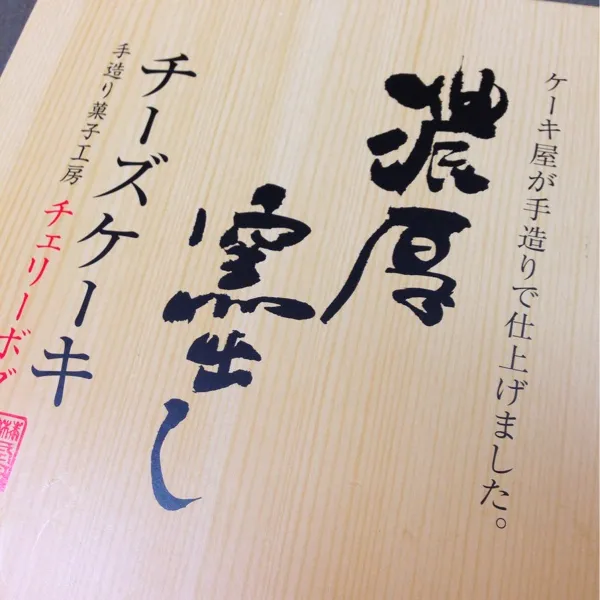 ケーキ屋が手造りで仕上げました。
濃厚
窯出し
チーズケーキ
手造り菓子工房
チェリーボグ